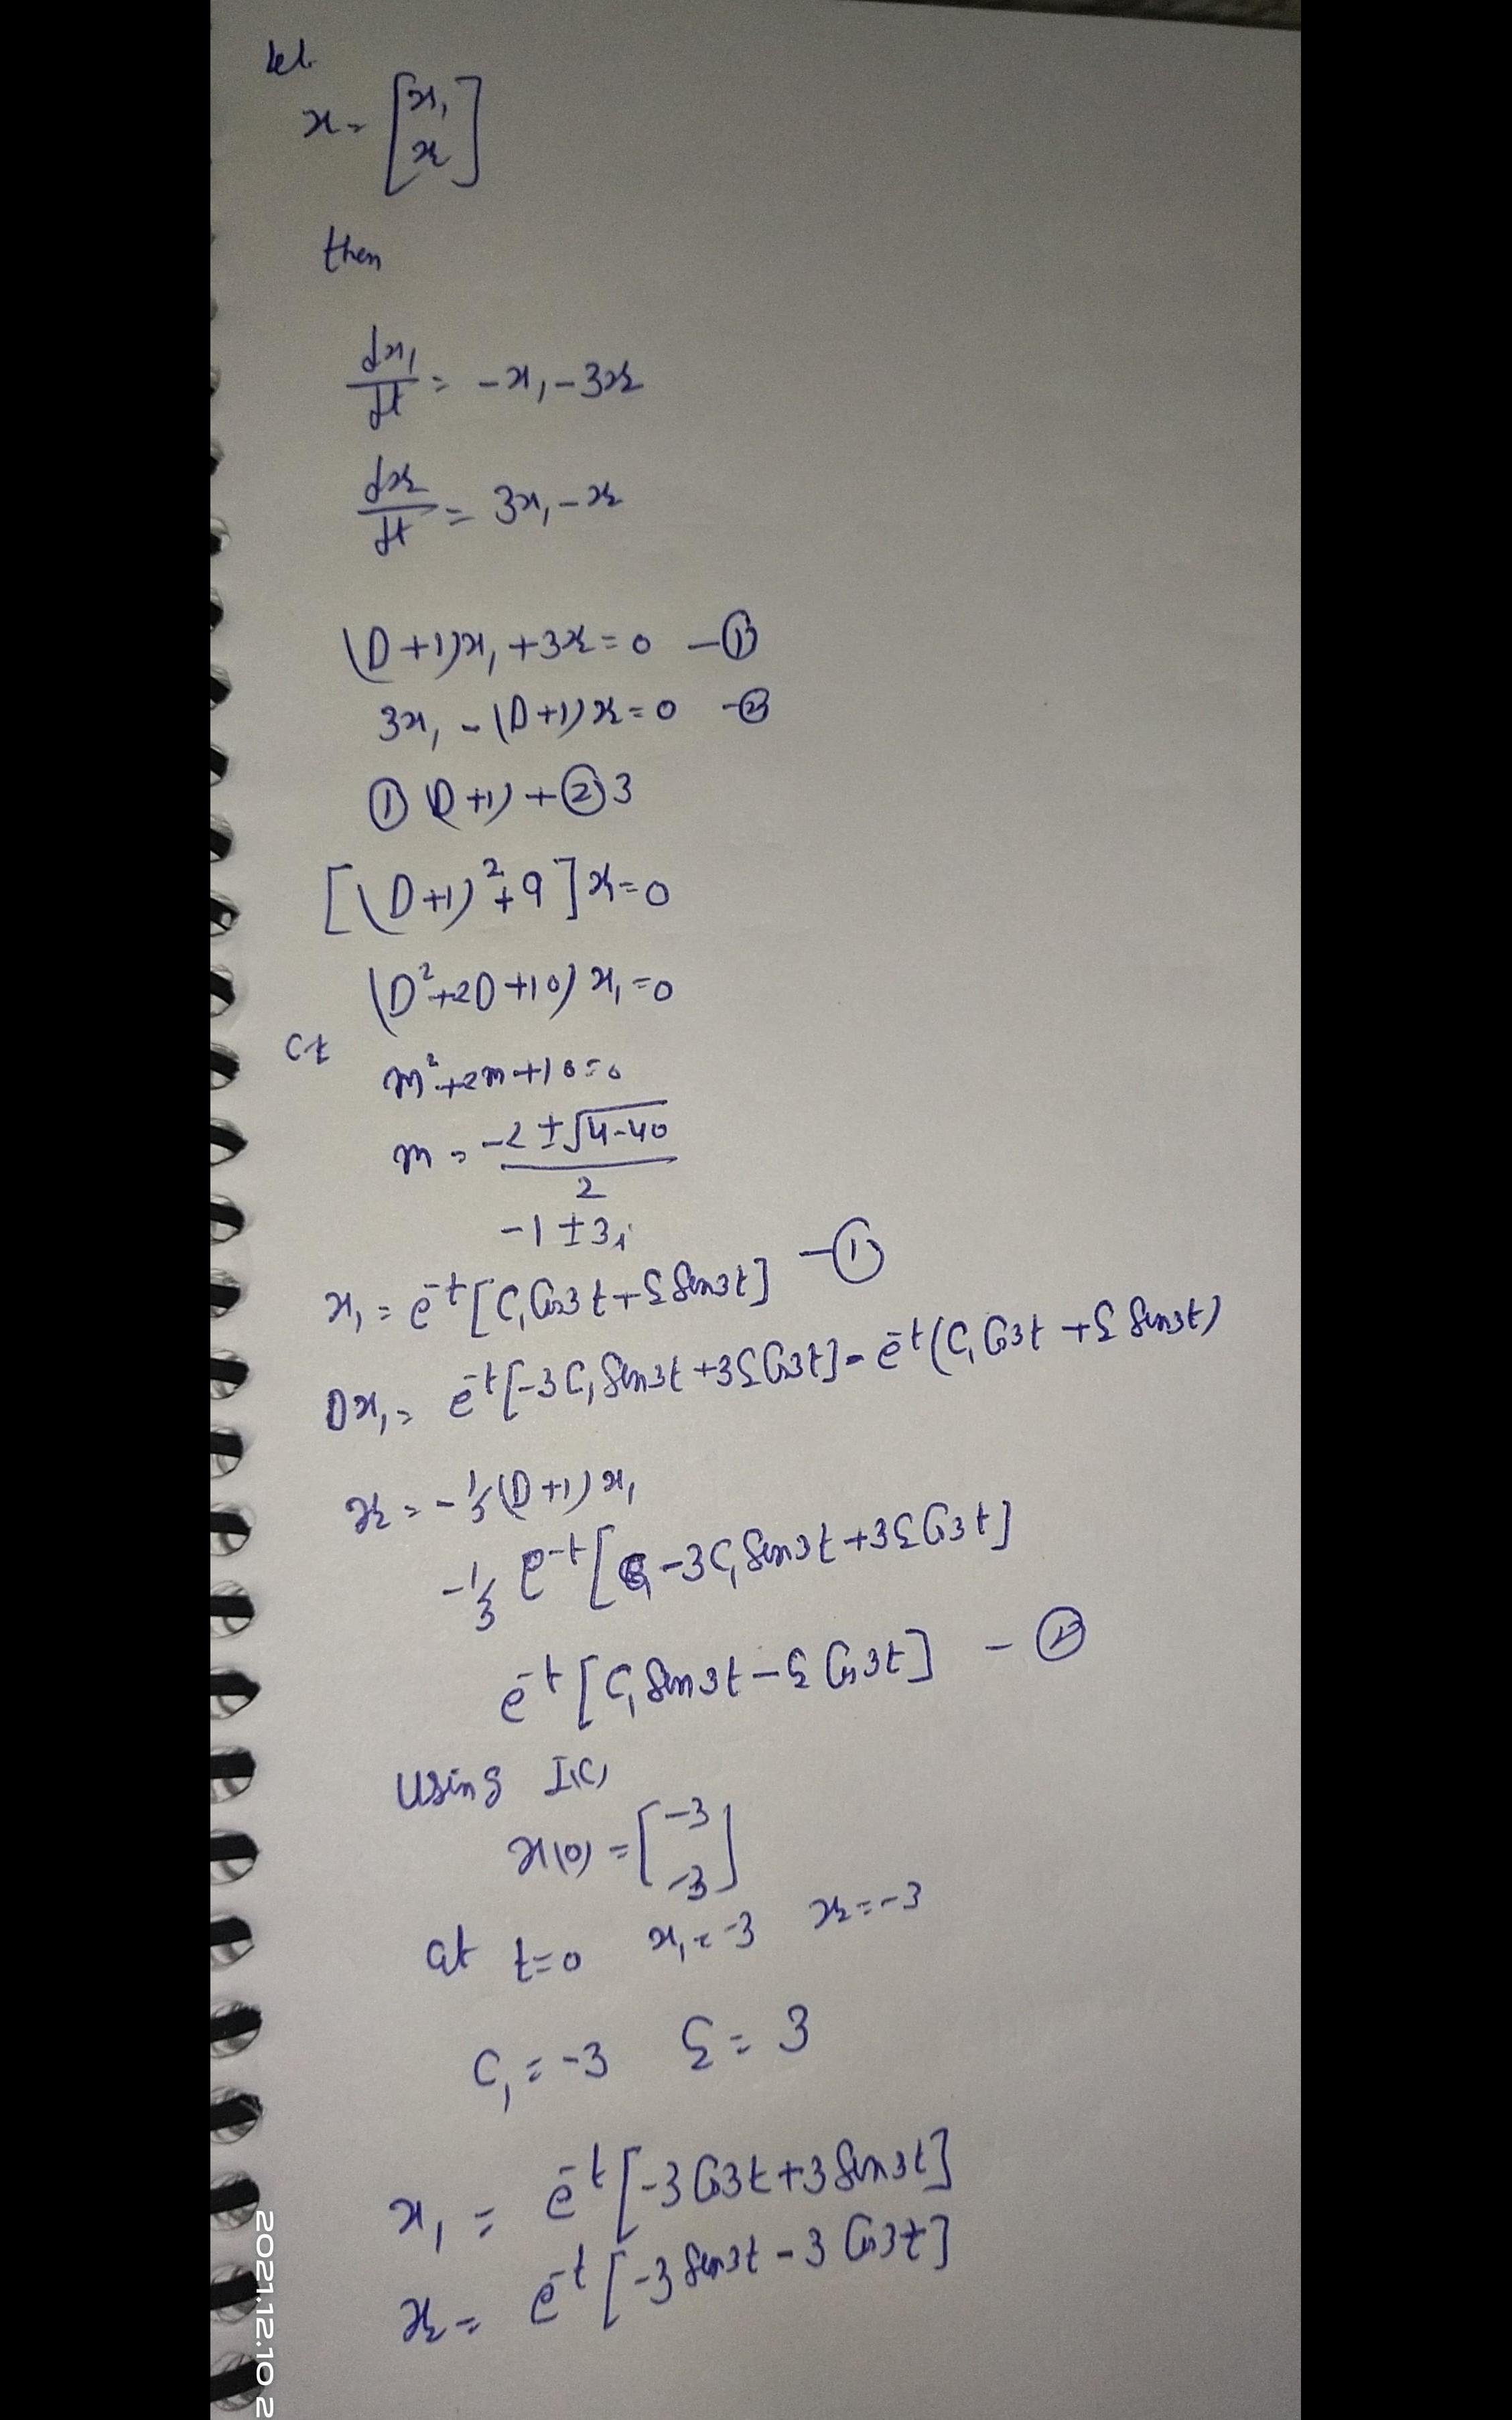 let
x = [x₁
x₂]
then
dx₁/dt = -x₁ - 3x₂
dx₂/dt = 3x₁ - x₂
(D+1)x₁ + 3x₂ = 0 - ①
3x₁ - (D+1)x₂ = 0 - ②
① (D+1) + ② 3
[(D+1)² + 9]x₁ = 0
(D² + 2D + 10) x₁ = 0
m² + 2m + 10 = 0
m = (-2 ± √(4-40))/2
-1 ± 3i
x₁ = e⁻ᵗ [C₁ Cos3t + C₂ Sin3t] - ①
Dx₁ = e⁻ᵗ [-3C₁ Sin3t + 3C₂ Cos3t] - e⁻ᵗ (C₁ Cos3t + C₂ Sin3t)
x₂ = -1/3 (D+1) x₁
-1/3 e⁻ᵗ [-3C₁ Sin3t + 3C₂ Cos3t]
e⁻ᵗ [C₁ Sin3t - C₂ Cos3t] - ②
Using I.C,
x(0) = [-3
-3]
at t=0 x₁ = -3 x₂ = -3
C₁ = -3 C₂ = 3
x₁ = e⁻ᵗ [-3 Cos3t + 3 Sin3t]
x₂ = e⁻ᵗ [-3 Sin3t - 3 Cos3t]
2021.12.10 2